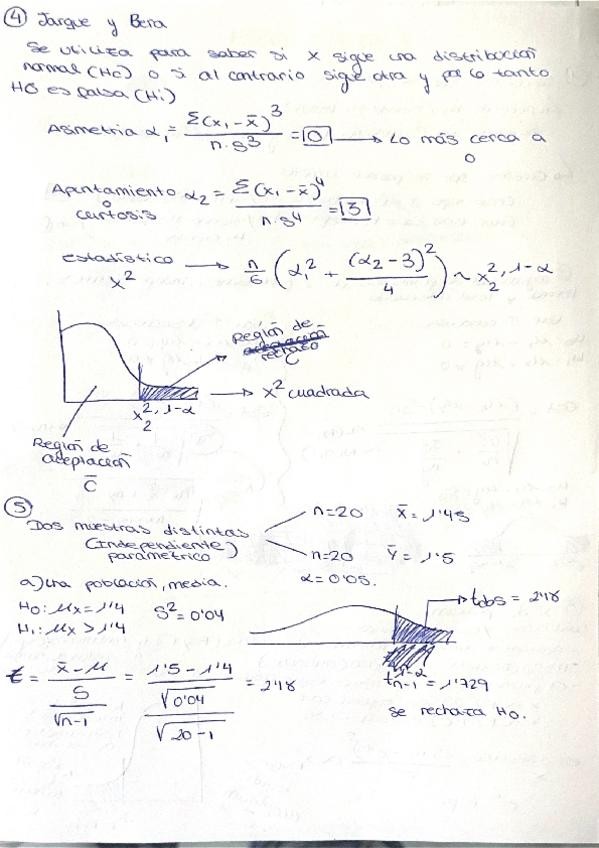 ④ Jarque y Bera
Se utiliza para saber si x sigue una distribución
normal (Ho) o si al contrario sigue otra y por lo tanto
Ho es falsa (H1)
Asimetria α₁ = Σ(x₁ - x̄)³ / n·s³ = 0 → Lo más cerca a
0
Apuntamiento α₂ = Σ(x₁ - x̄)⁴ / n·s⁴ = 3
o
curtosis
estadístico → n/6 (α₁² + (α₂ - 3)² / 4) ~ x₂², 1-α
x²
Región de
rechazo
C
→ x² cuadrada
x₂², 1-α
Región de
aceptación
C̄
⑤
Dos muestras distintas
(Independiente)
parametrico
n=20 x̄ = 1'45
n=20 ȳ = 1'5
α = 0'05.
a) Una población, media.
Ho: μx = 1'4 S² = 0'04
H₁: μx > 1'4
tobs = 2'18
t = (x̄ - μ) / (S / √n-1) = (1'5 - 1'4) / (√0'04 / √20-1) = 2'18
t n-1, 1-α = 1'729
se rechaza Ho.